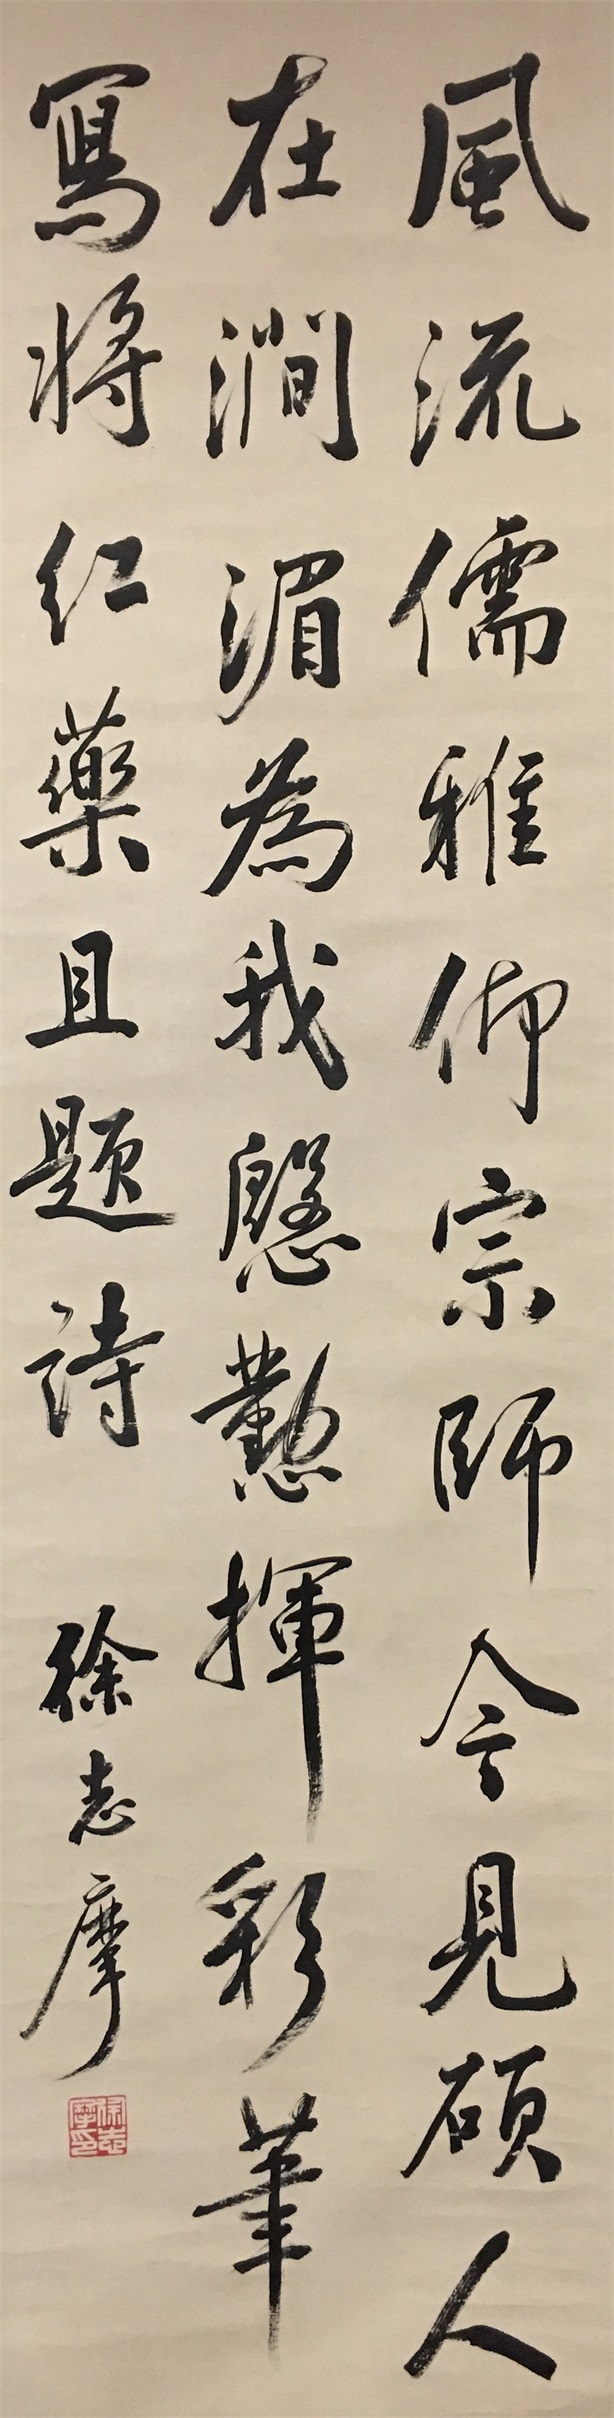 風流儒雅仰宗師今見碩人
在澗湄為我慇懃揮彩筆
寫將紅藥且題詩
徐志摩
徐志摩印